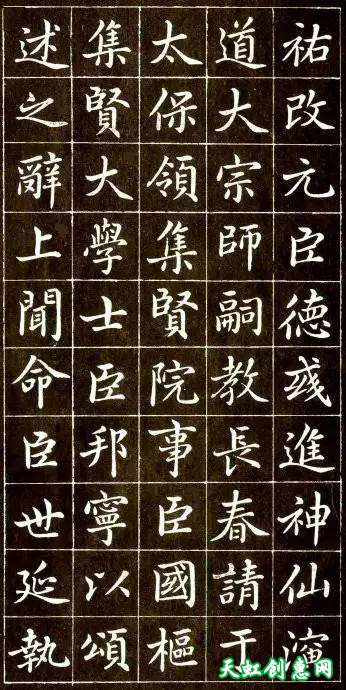 祐改元臣德彧進神仙演
道大宗師嗣教長春請于
太保領集賢院事臣國樞
集賢大學士臣邦寧以頌
述之辭上聞命臣世延執
天虹创惠网